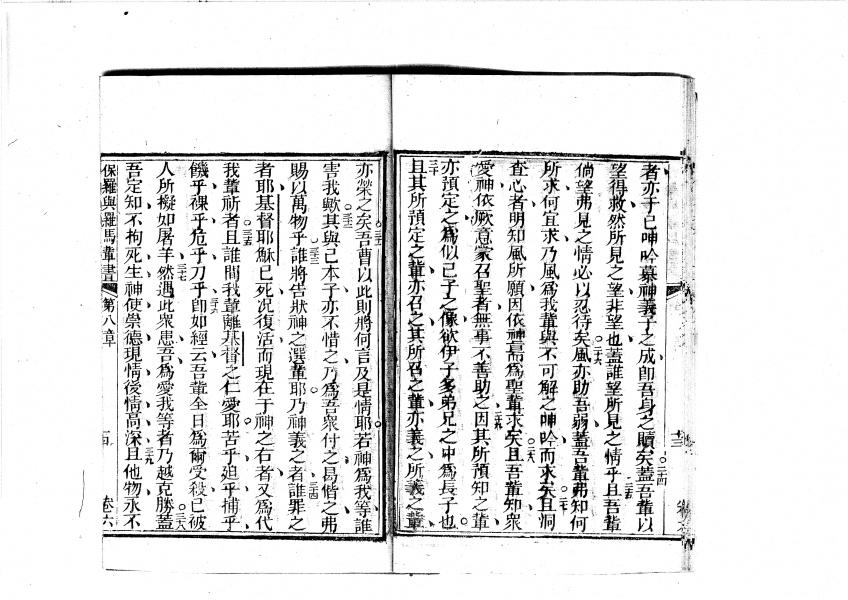 者亦于己呻吟慕神義子之成即吾身之贖矣蓋吾輩以
望得救然所見之望非望也蓋誰望所見之情乎且吾輩
倘望弗見之情必以忍待矣風亦助吾弱蓋吾輩弗知何
所求何宜求乃風為我輩與不可解之呻吟而求矣且洞
查心者明知風所願因依神而為聖輩求矣且吾輩知衆
愛神依厥意蒙召聖者無事不善助之因其所預知之輩
亦預定之為似己子之像欲伊子多弟兄之中為長子也
且其所預定之輩亦召之其所召之輩亦義之所義之輩
亦榮之矣吾曹以此則將何言及是情耶若神為我等誰
害我歟其與己本子亦不惜之乃為吾衆付之曷偕之弗
賜以萬物乎誰將告狀神之選輩耶乃神義之者誰罪之
者耶基督耶穌已死况復活而現在于神之右者又為代
我輩祈者且誰間我輩離基督之仁愛耶苦乎廹乎捕乎
饑乎裸乎危乎刀乎即如經云吾輩全日為爾受殺已被
人所擬如屠羊然遇此衆患吾為愛我等者乃越克勝蓋
吾定知不拘死生神使崇德現情後情高深且他物永不
保羅與羅馬輩書 第八章 卷六
二四
二五
二六
二七
二八
二九
三十
三一
三二
三三
三四
三五
三六
三七
三八
三九